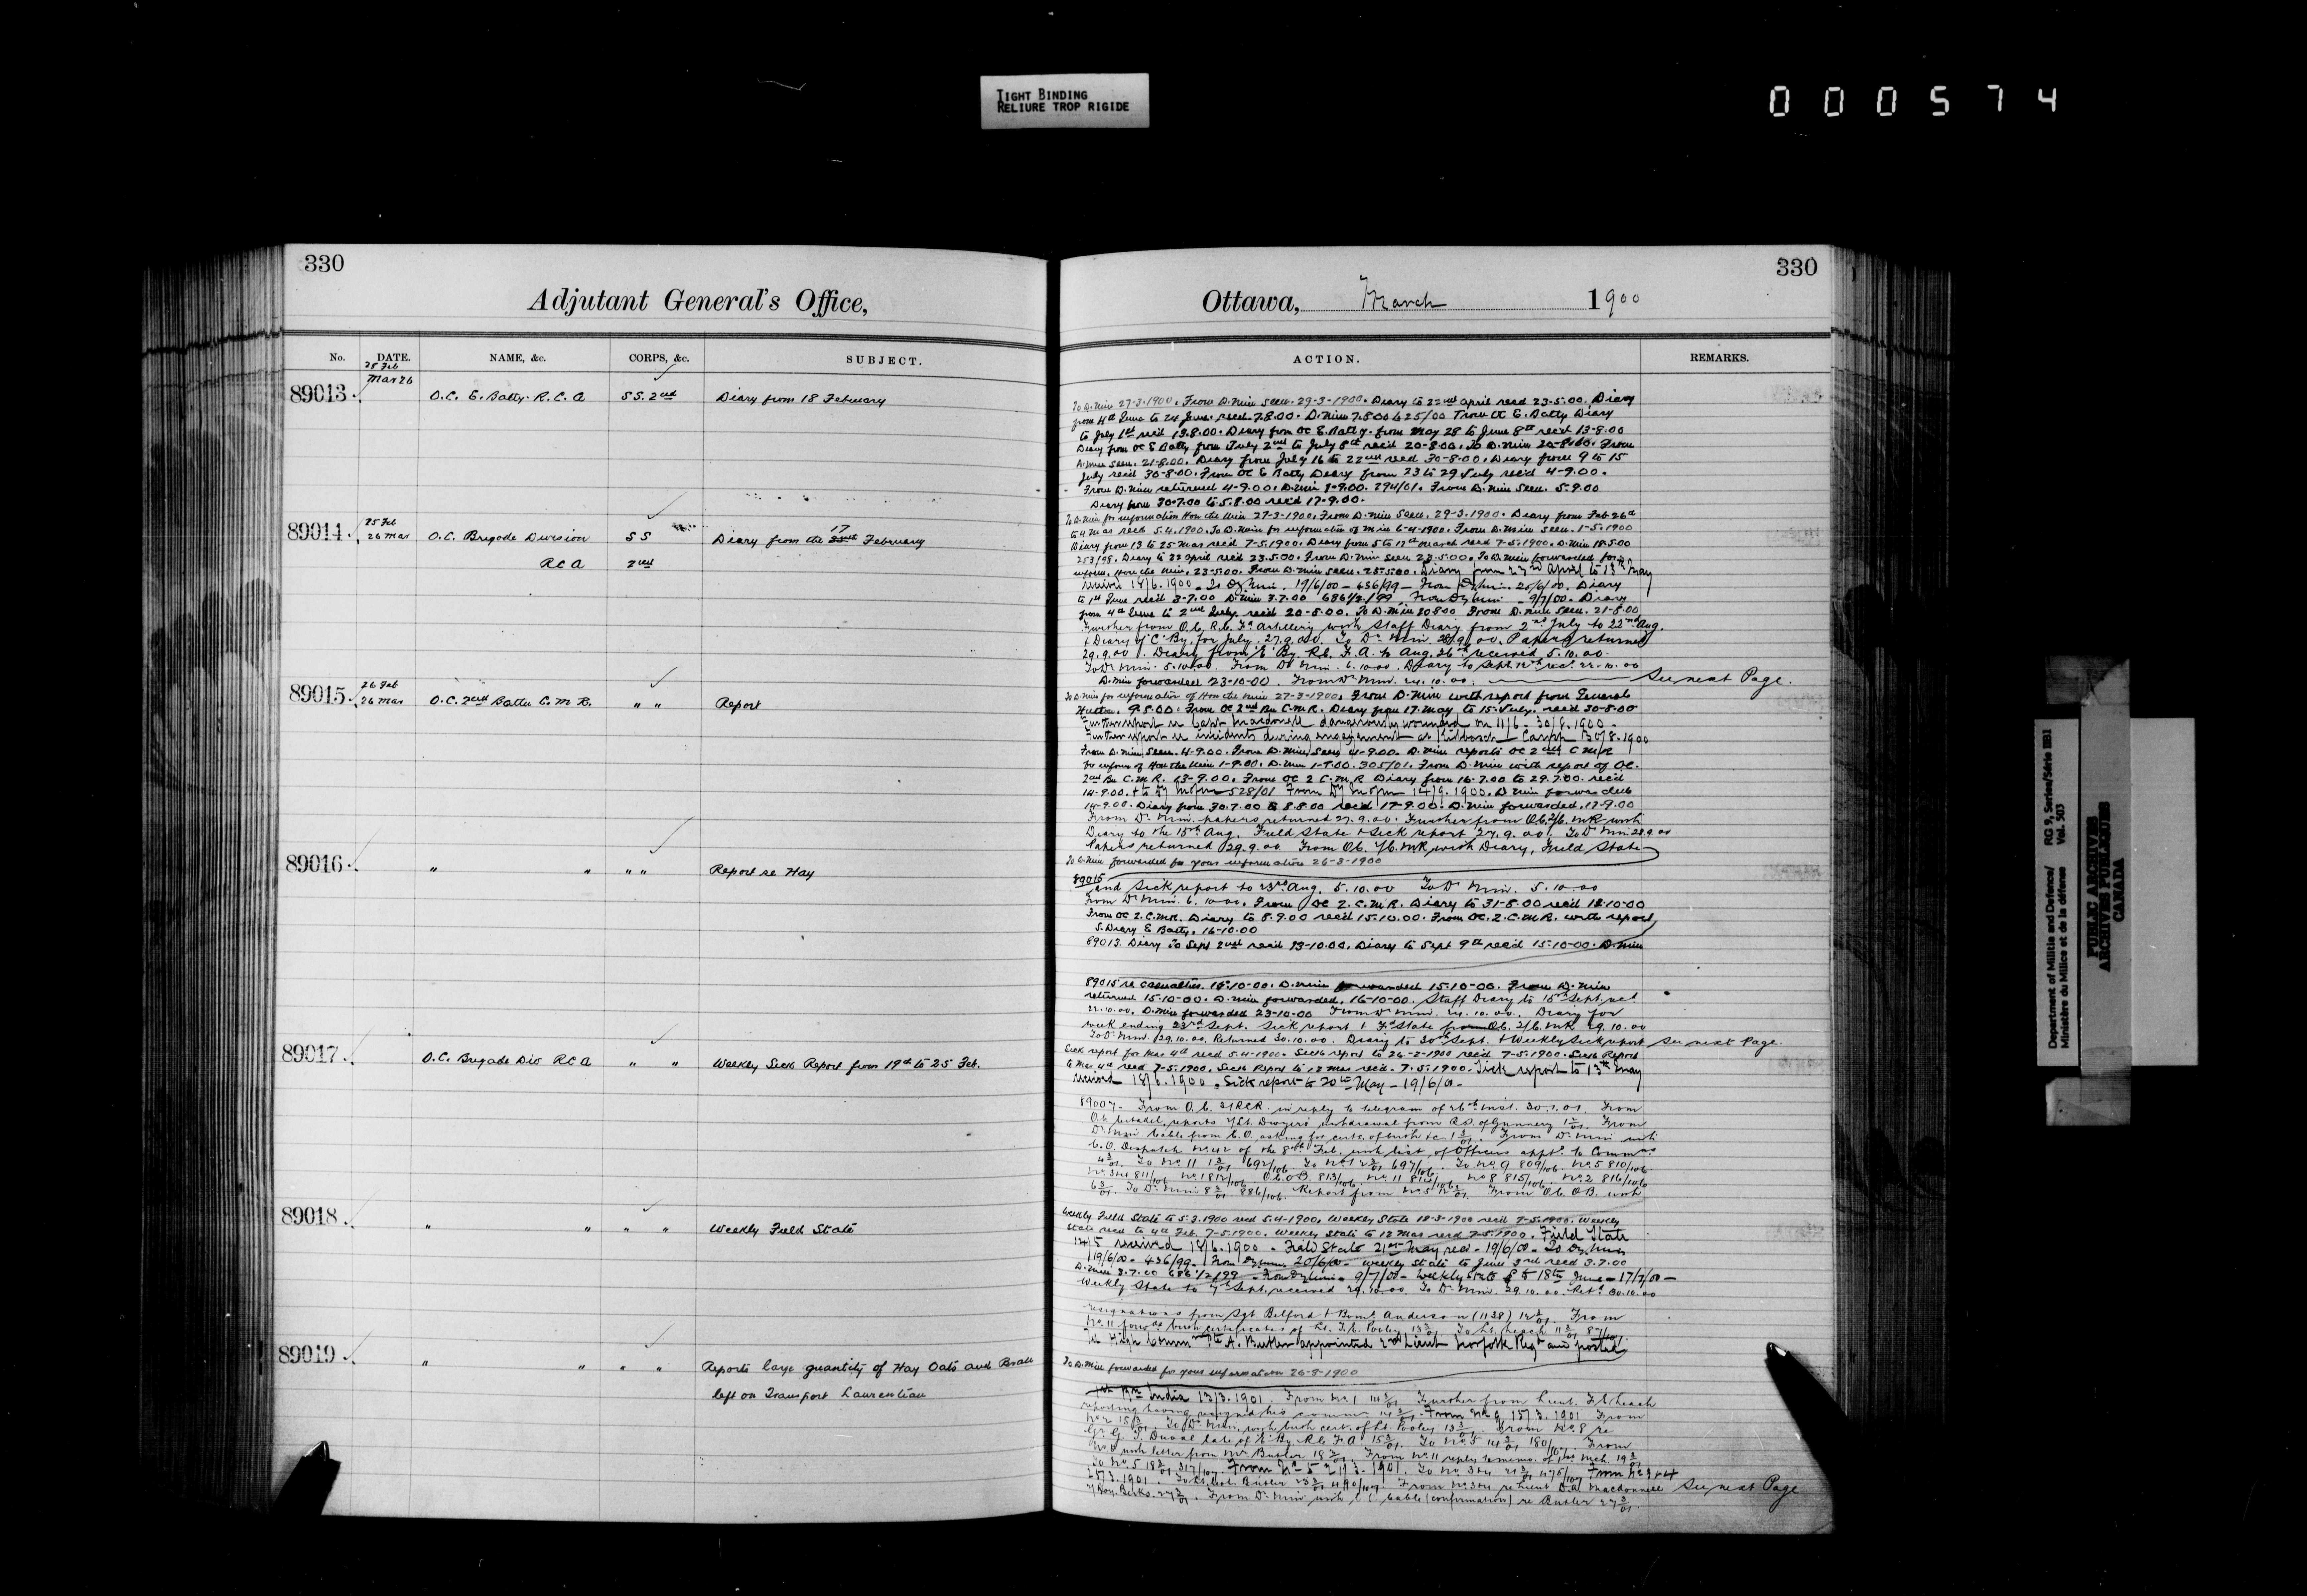 TIGHT BINDING
RELIURE TROP RIGIDE
000574
330
Adjutant General's Office,
No. DATE. NAME, &c. CORPS, &c. SUBJECT.
25 Feb
89013. Mar 26 O.C. E. Batty. R.C.A SS. 2nd Diary from 18 February
25 Feb
17
89014. 26 Mar O.C. Brigade Division SS Diary from the February
RCA 2nd
26 Feb
89015. 26 Mar O.C. 2nd Battn C.M.R. " " Report
89016 " " " " Report re Hay
89017. O.C. Brigade Div RCA " " Weekly Sick Report from 19th to 25 Feb.
89018. " " " " Weekly Field State
89019 " " " " Reports large quantity of Hay Oats and Bran
left on Transport Laurentian
330
Ottawa, March 1900
ACTION. REMARKS.
To D. Min 27-3-1900. From D. Min seen. 29-3-1900. Diary to 22nd April recd 23-5-00. Diary
from 4th June to 24 June. recd. 7.8.00. D. Min 7.8.00 625/00 From OC E. Batty Diary
to July 1st rec'd 13.8.00. Diary from OC E Batty. from May 28 to June 8th rec'd 13-8-00
Diary from OC E Batty from July 2nd to July 8th rec'd 20-8-00. To D. Min 20-8-00. From
D. Min seen. 21-8-00. Diary from July 16 to 22nd recd 30-8-00. Diary from 9 to 15
July rec'd 30-8-00. From OC E Batty Diary from 23 to 29 July rec'd 4-9-00.
From D. Min returned 4-9-00. D. Min 294/01. From D. Min seen. 5-9-00
Diary from 30-7.00 to 5.8.00 rec'd 17-9.00.
To D. Min for information Hon the Min 27-3-1900. From D. Min seen. 29-3-1900. Diary from Feb 26th
to 4 Mar recd 5.4.1900. To D. Min for information of Min 6-4-1900. From D. Min seen. 1-5-1900
Diary from 13 to 25 Mar recd 7-5.1900. Diary from 5 to 12th March recd 7-5-1900. D. Min 18.5.00
253/98. Diary to 22 April rec'd 23.5.00. From D. Min seen 23.5.00. To D. Min forwarded for
inform. Hon the Min. 23-5-00. From D. Min seen. 25-5-00. Diary from 23rd April to 13th May
18/6.1900. To Dy Min. 19/6/00 - 436/99 - From Dy Min. 20/6/00. Diary
to 1st June rec'd 3-7.00 D. Min 3.7.00 686 1/2/99 From Dy Min - 9/7/00. Diary
from 4th June to 2nd July. rec'd 20-8.00. To D. Min 20.8.00 From D. Min seen. 21-8.00
Further from O.C. R.C. Fd Artillery with Staff Diary from 2nd July to 22nd Aug.
+ Diary of "C" By. for July. 27.9.00. To Dr Min. 28/9/00. Papers returned
29.9.00. Diary from "E" By. R.C. F.A. to Aug. 26th received 5.10.00.
To Dr Min. 5.10.00. From Dr Min. 6.10.00. Diary to Sept. 12th rec'd 22.10.00
D. Min forwarded 23-10-00. From Dr Min. 24.10.00. See next Page.
To D. Min for information of Hon the Min 27-3-1900. From D. Min with report from General
Hutton. 9.5.00. From OC 2nd Bn C.M.R. Diary from 17. May to 15. July. recd 30-8-00
Further report re Capt Macdonell dangerously wounded on 11/6 - 30/8.1900 -
Further report re incidents during engagement at Camp 30/8.1900
From D. Min seen. 4-9-00. From D. Min seen 4-9-00. D. Min reports OC 2nd CMR
for inform of Hon the Min 1-9-00. D. Min 305/01. From D. Min with report of OC.
2nd Bn C.M.R. 13-9.00. From OC 2 C.M.R Diary from 16-7.00 to 29.7.00. rec'd
14-9.00. + to Dy Min 528/01 From Dy Min 14/9.1900. D Min forwarded
14-9-00. Diary from 30.7.00 to 8.8.00 rec'd 17-9.00. D. Min forwarded. 17-9.00
From Dr Min. papers returned 27.9.00. Further from O.C. 2/C.MR with
Diary to the 15th Aug. Field State + Sick report 27.9.00. To Dr Min 28.9.00
Papers returned 29.9.00 From O.C. 2/C.MR with Diary, Field State
To D. Min forwarded for your information 26-3-1900
89015
and Sick report to 23rd Aug. 5.10.00 To Dr Min. 5.10.00
From Dr Min. 6.10.00. From OC 2.C.M.R. Diary to 31-8.00 rec'd 12-10-00
From OC 2.C.M.R. Diary to 8.9.00 rec'd 15.10.00. From OC. 2.C.M.R. with report,
S. Diary E Batty. 16-10.00
89013. Diary to Sept 2nd rec'd 13-10.00. Diary to Sept 9th rec'd 15-10-00. D. Min
89015 re casualties. D. Min forwarded 15-10-00. From D. Min
returned 15-10-00. D. Min forwarded. 16-10-00. Staff Diary to 15th Sept. rec'd
22.10.00. D. Min forwarded 23-10-00 From Dr Min. 24.10.00. Diary for
week ending 23rd Sept. Sick report + Fd State from O.C. 2/C.MR 29.10.00
To Dr Min 29.10.00. Returned 30.10.00. Diary to 30th Sept. + Weekly Sick report See next Page.
Sick report for Mar 4th recd 5.4-1900. Sick report to 26-2-1900 rec'd 7-5-1900. Sick Report
to Mar 4th recd 7-5-1900. Sick Report to 12 Mar recd. 7.5.1900. Sick report to 13th May
18/6.1900. Sick report to 20th May - 19/6/00 -
89007 - From O.C. 2/RCR in reply to telegram of 26th inst. 30.1.01. From
O.C. Citadel, reports Lt. Dwyer's withdrawal from R.S. of Gunnery From
Dr Min Cable from C.O. asking for certs. of birth From Dr Min with
C.O. Despatch No 42 of the 8th Feb. with list of Officers appd. to Comms
To No. 11 692/106 To No 1 697/106. To No. 9 809/106. No. 5 810/106
No. 3+4 811/106 No 1 812/106. O.C.O.B. 813/106 No. 11 814/106 No 8 815/106. No. 2 816/106
To Dr Min 886/106. Report from No 5 From O.C. O.B. with
Weekly Field State to 5.3.1900 recd 5.4-1900. Weekly State 18-3-1900 rec'd 7-5-1900. Weekly
State rec'd to 4th Feb 7-5.1900. Weekly State to 12 Mar recd 7-5-1900. Field State
14/5 received 18/6.1900. Field State 21st May recd - 19/6/00 - To Dy Min
19/6/00 - 436/99 - From Dy Min 20/6/00 - Weekly State to June 3rd rec'd 3.7.00
D. Min 3.7.00 686 1/2/99 - From Dy Min - 9/7/00 - Weekly State to 18th June - 17/7/00 -
Weekly State to 7th Sept. received 29.10.00 To Dr Min. 29.10.00. Retd. 30.10.00
resignations from Sgt Belford + Bomr. Anderson (1138) From
No 11 forwds birth certificates of Lt. T.E. Pooley To Lt. Leach
High Commr Pte A. Butler appointed 2nd Lieut Norfolk Regt and posted
To D. Min forwarded for your information 26-3-1900
1st Bn India 13/3.1901. From No. 1 Further from Lieut. F. Leach
reporting having resigned his comm From No 9 15/3.1901 From
No 2 To Dr Min, with birth cert. of Lt. Pooley From No. 8 re
Gr. G. T. Duval late of "E" By. R.C.F.A To No. 5 180/107. From
No 5 with letter from Mr Butler From No. 11 reply to memo. of Mch.
To No. 5 317/107. From No 5 21/3.1901. To No. 3+4 475/107 From No 3+4
1901. To Lt. Butler From No. 3+4 re Lieut D.H. Macdonnell See next Page
From Dr Min with cable (confirmation) re Butler
Department of Militia and Defence/ RG 9, Series/Série IIB1
Ministère du Milice et de la défense Vol. 503
PUBLIC ARCHIVES
ARCHIVES PUBLIQUES
CANADA